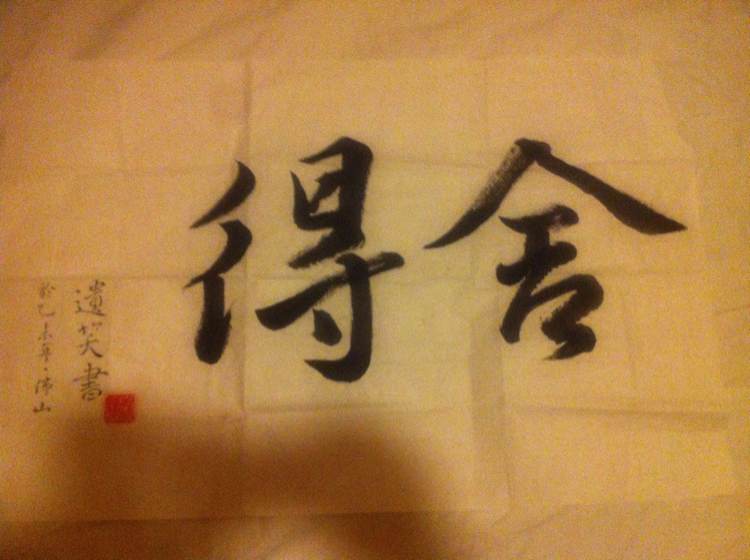 舍得
遗笑書
於乙未年·佛山